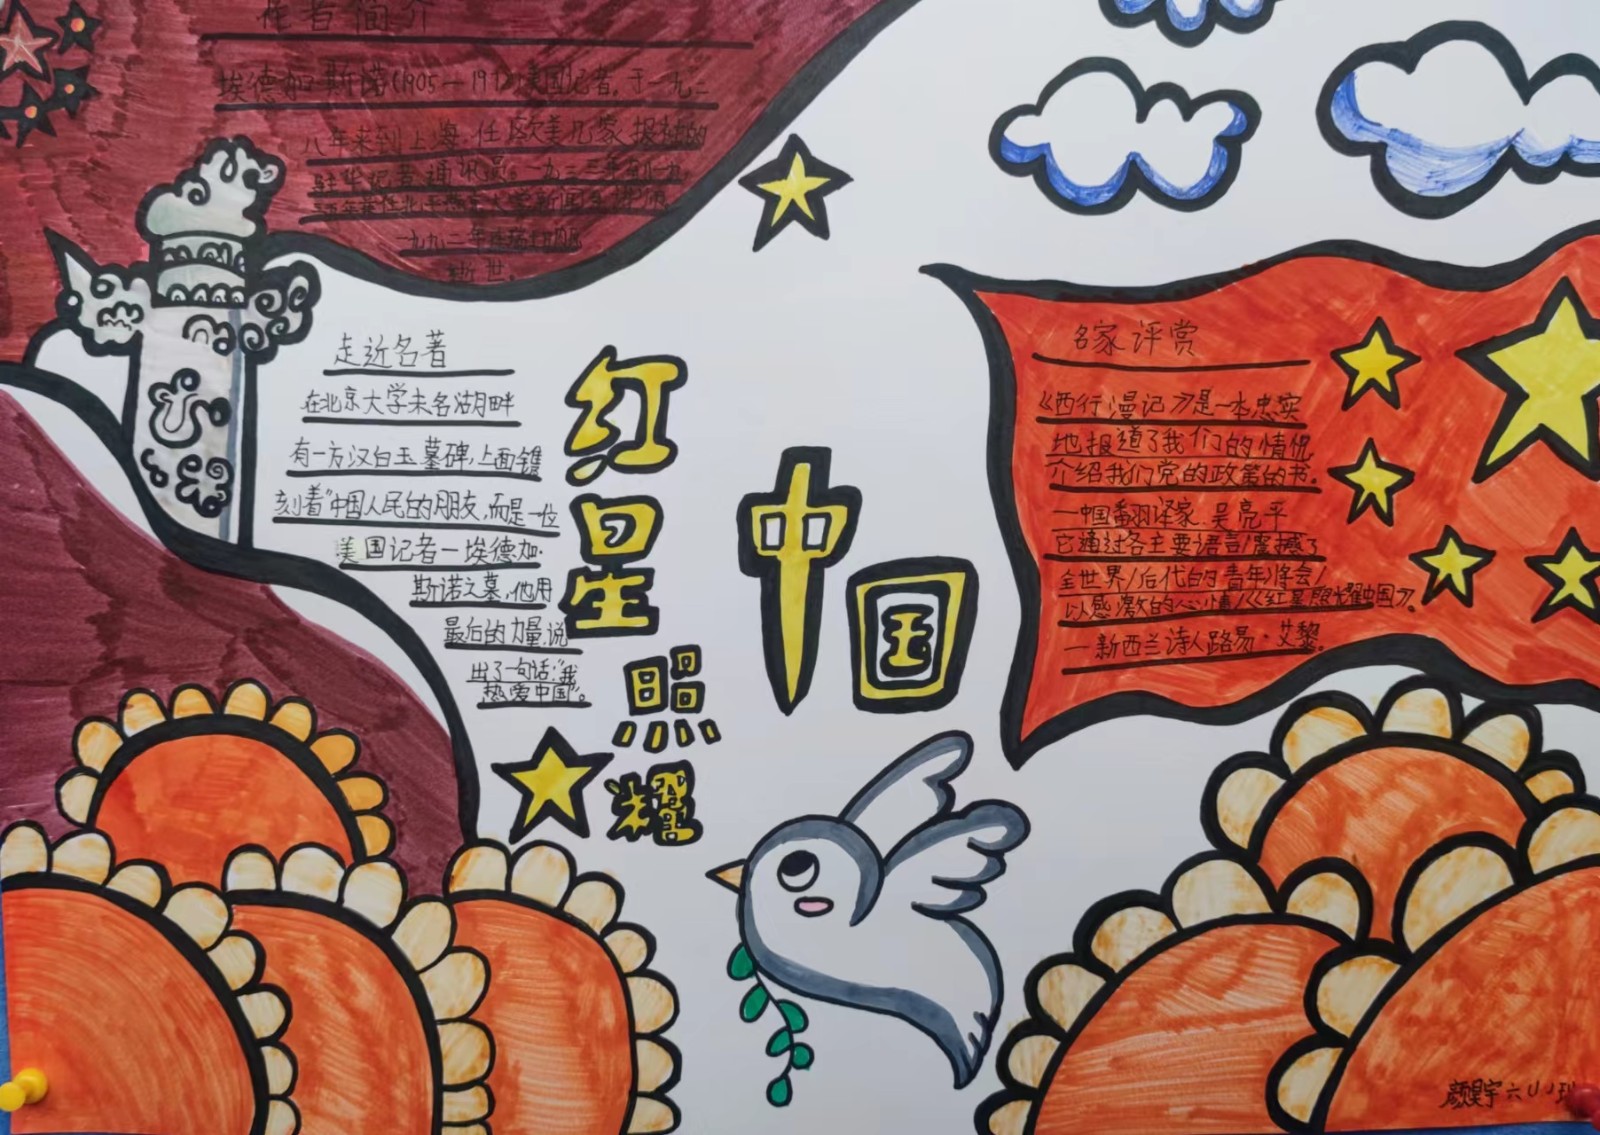 作者简介
埃德加·斯诺(1905—197)美国记者。于一九二
八年来到上海,任欧美几家报社的
驻华记者通讯员。一九三三年到一九
新闻系讲师
一九七二年
逝世。
走近名著
在北京大学未名湖畔
有一方汉白玉墓碑,上面镌
刻着"中国人民的朋友,而是一位
美国记者—埃德加·
斯诺之墓,他用
最后的力量,说
出了一句话:"我
热爱中国"。
红星照耀
中国
名家评赏
《西行漫记》是一本忠实
地报道了我们的情况
介绍我们党的政策的书。
—中国翻译家 吴亮平
它通过各主要语言/震撼了
全世界/后代的青年/将会/
以感激的心情/《红星照耀中国》。
—新西兰诗人路易·艾黎。